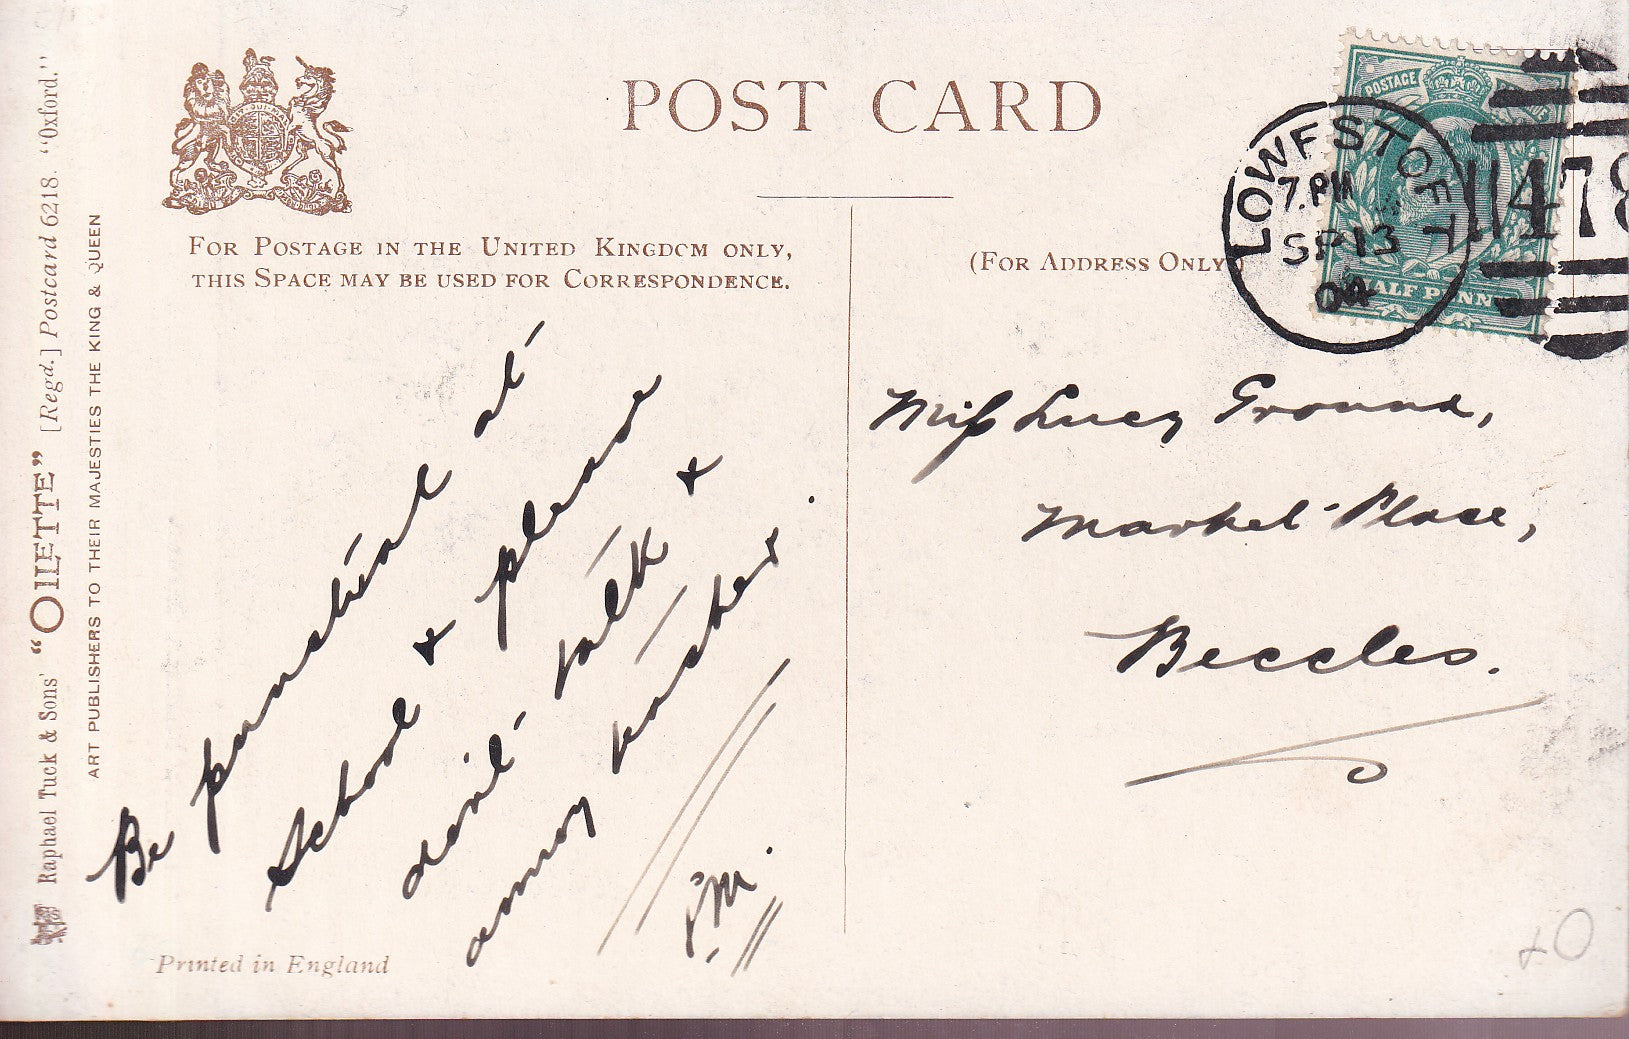 POST CARD
FOR POSTAGE IN THE UNITED KINGDOM ONLY,
THIS SPACE MAY BE USED FOR CORRESPONDENCE.
(FOR ADDRESS ONLY)
Raphael Tuck & Sons' "OILETTE" [Regd.] Postcard 6218. "Oxford."
ART PUBLISHERS TO THEIR MAJESTIES THE KING & QUEEN
Be punctual at
School & please
don't talk &
annoy teacher.
Printed in England
POSTAGE
HALF PENN
LOWESTOFT
7.PM
SP13
04
478
Miss Lucy Ground,
Market Place,
Beccles.